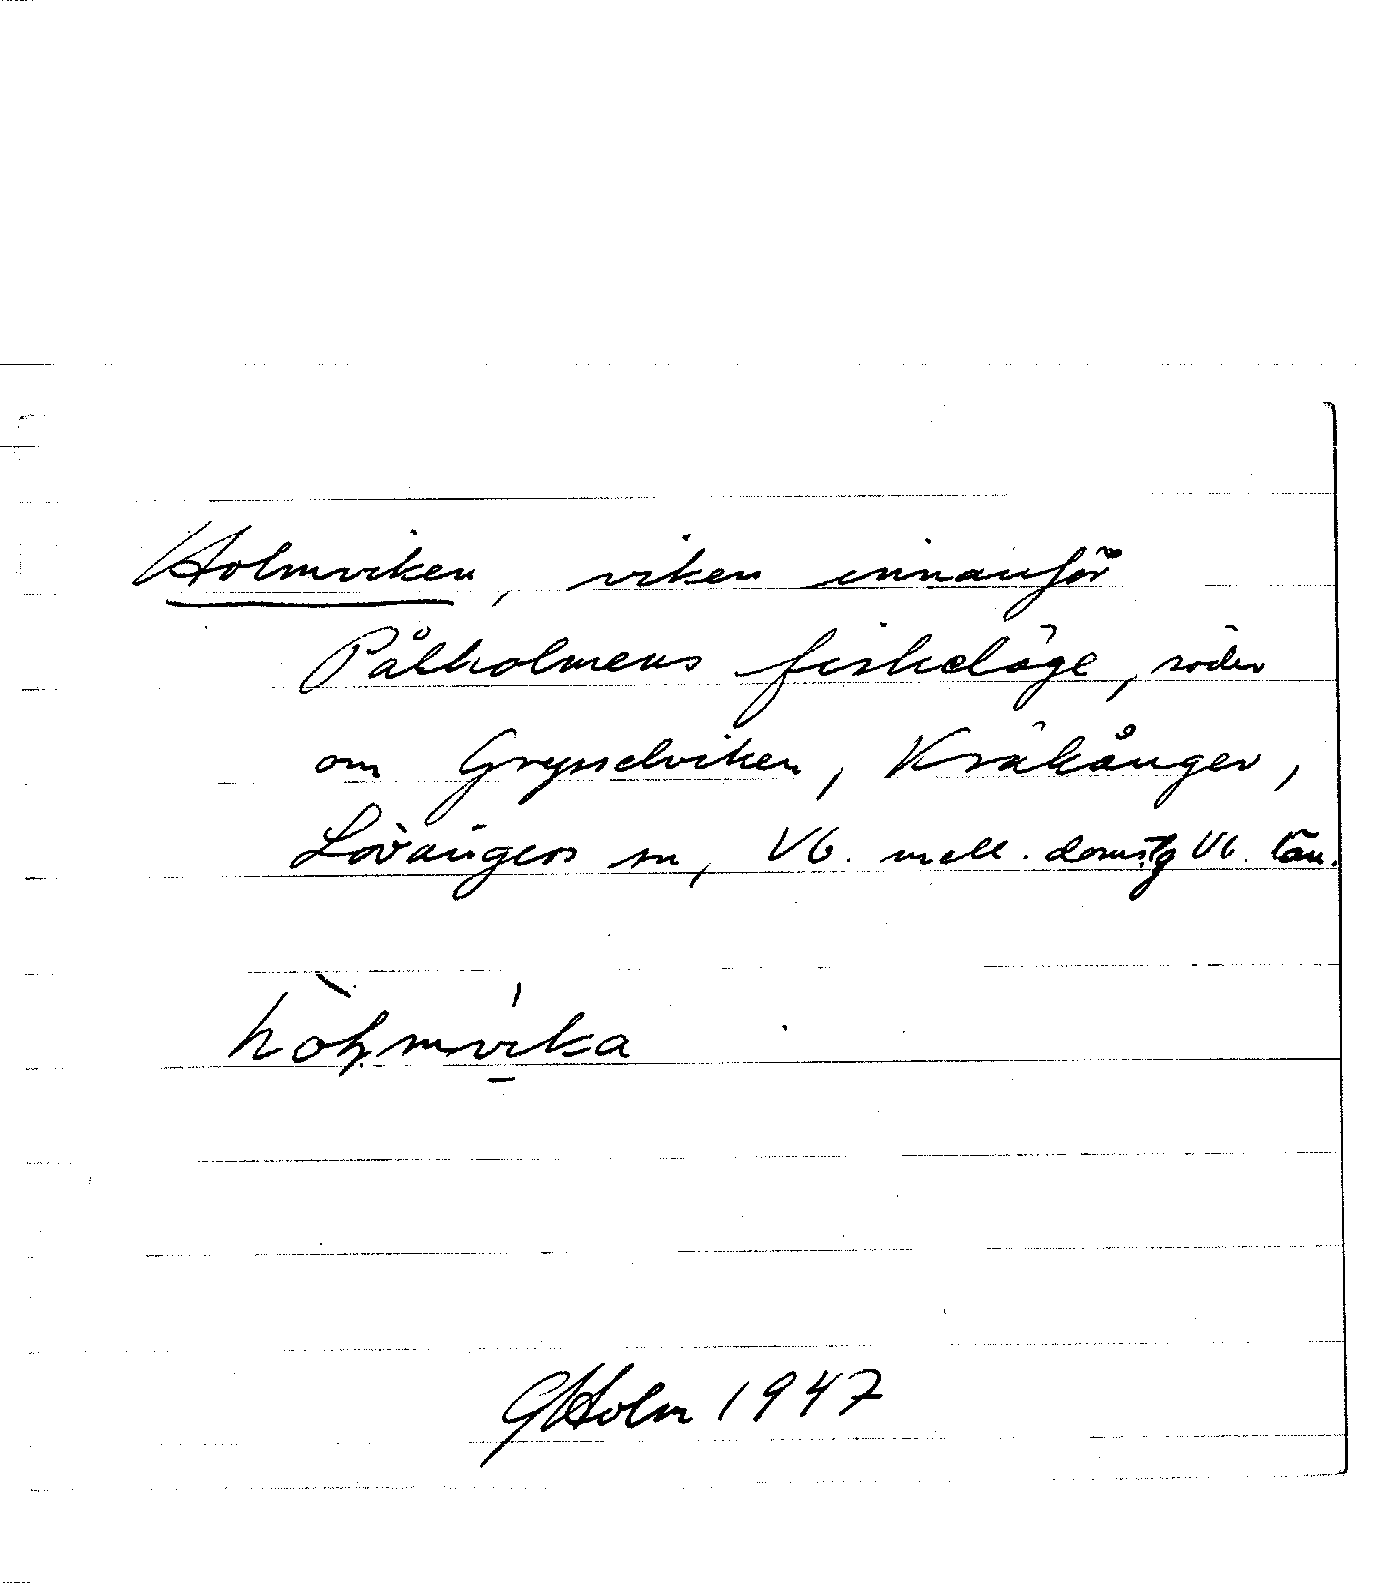 Holmviken, viken innanför
Pålholmens fiskeläge, söder
om Grysselviken, Kräkånger,
Lövångers sn, Vb. mell. domsg Vb. län.
GHolm 1947